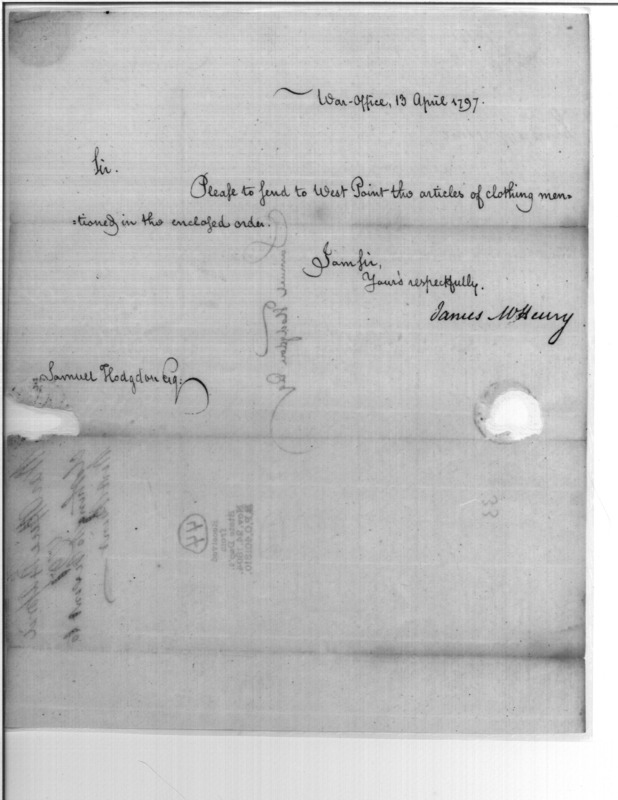 War-Office, 13 April 1797.
Sir.
Please to send to West Point the articles of clothing men=
=tioned in the enclosed order.
I am Sir,
Your's respectfully.
James McHenry
Samuel Hodgdon Esq:
Samuel Hodgdon Esq
44
33